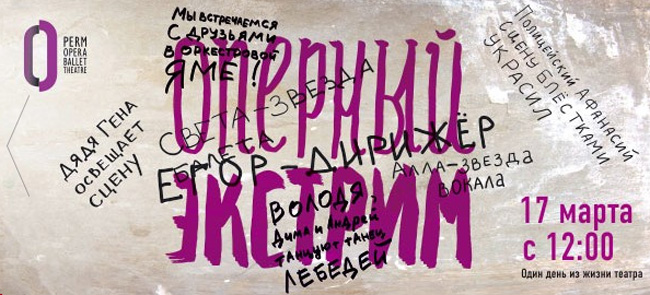 PERM
OPERA
BALLET
THEATRE
Мы встречаемся
с друзьями
в оркестровой
яме!
Полицейский Афанасий
сцену блёстками
украсил
ОПЕРНЫЙ
ЭКСТРИМ
Дядя Гена
освещает
сцену
Света-звезда
балета
Егор-дирижёр
Алла-звезда
вокала
Володя,
Дима и Андрей
танцуют танец
лебедей
17 марта
с 12:00
Один день из жизни театра